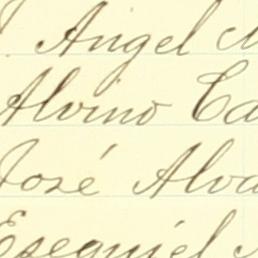 Angel
Alvino Ca
José Alva
Esequiel